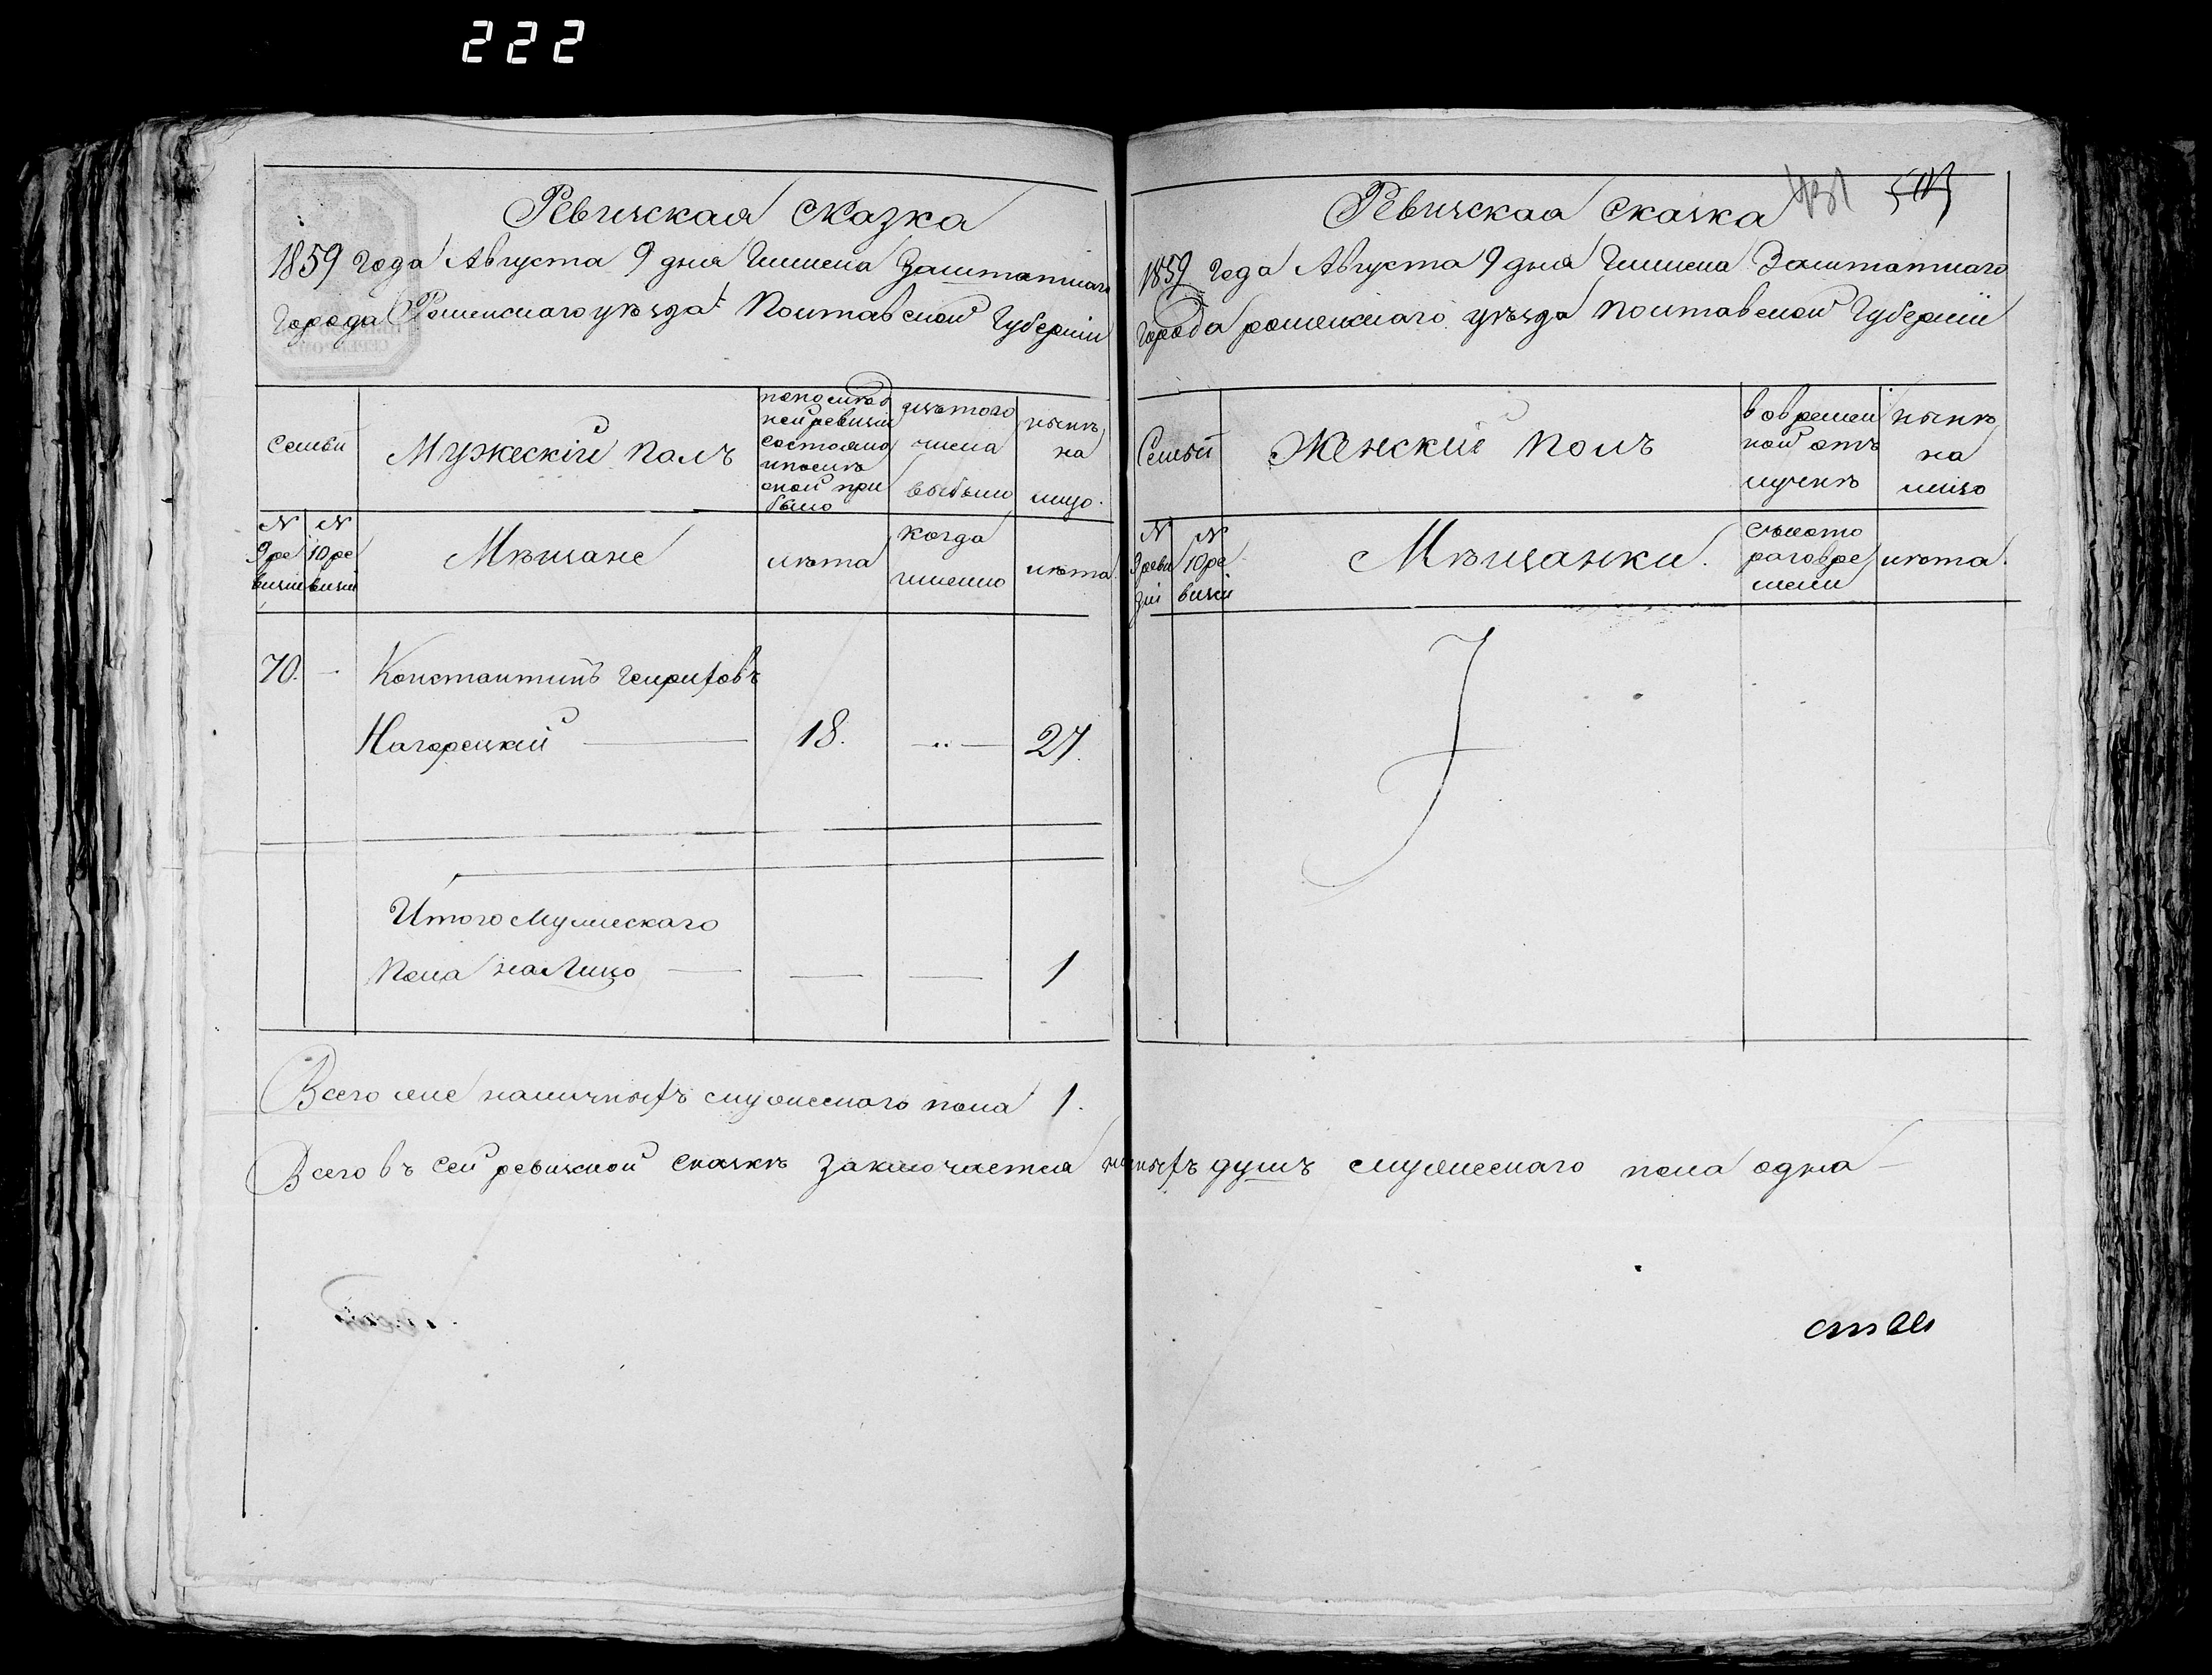 222
Ревизская сказка
1859 года Августа 9 дня Глинска Заштатнаго
Города Роменскаго уѣзда Полтавской Губерніи
Семьи
Мужескій полъ
по последней ревизіи состояло и после оной прибыло
изъ того числа выбыло
нынѣ на лицо.
N 9 ревизіи
N 10 ревизіи
Мѣщане
лѣта
когда именно
лѣта
70. —
Константинъ
Нагорецкій — 18. — 27.
Итого Мужескаго
пола на Лицо — — — 1
Всего наличныхъ мужескаго пола 1.
Ревизская сказка
1859 года Августа 9 дня Глинска Заштатнаго
города роменскаго уѣзда полтавской Губерніи
Семьи
Женскій полъ
во временной отлучкѣ
нынѣ на лицо
N 9 ревизіи
N 10 ревизіи
Мѣщанки.
съ котораго времени
лѣта.
Всего въ сей ревизской сказкѣ заключается душъ мужескаго пола одна —